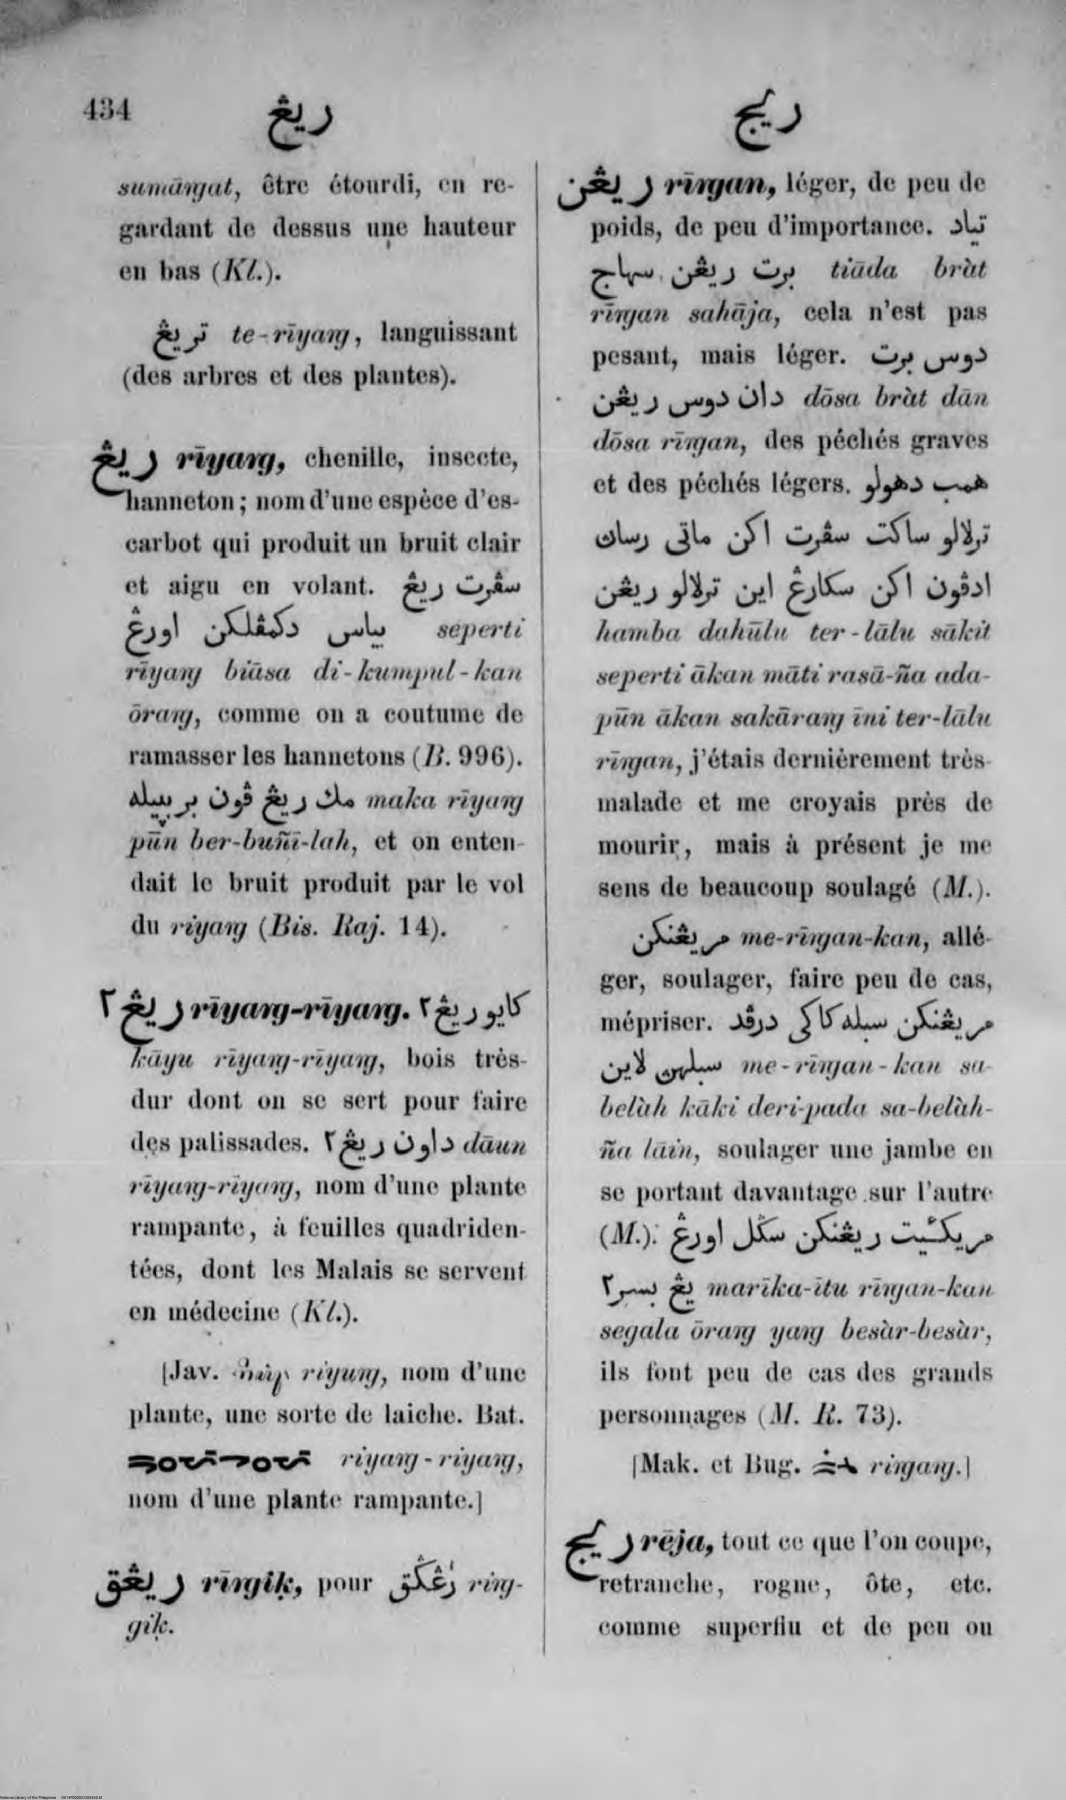 434
ريڠ
ريج
sumāŋat, être étourdi, en re-
gardant de dessus une hauteur
en bas (Kl.).
تريڠ te-rīyaŋ, languissant
(des arbres et des plantes).
ريڠ rīyaŋ, chenille, insecte,
hanneton; nom d'une espèce d'es-
carbot qui produit un bruit clair
et aigu en volant. سڤرت ريڠ
بياس دكمڤلكن اورڠ seperti
rīyaŋ biāsa di-kumpul-kan
ōraŋ, comme on a coutume de
ramasser les hannetons (B. 996).
مك ريڠ ڤون بر maka rīyaŋ
pūn ber-buñī-lah, et on enten-
dait le bruit produit par le vol
du riyaŋ (Bis. Raj. 14).
ريڠ٢ rīyaŋ-rīyaŋ. كايو ريڠ٢
kāyu rīyaŋ-rīyaŋ, bois très-
dur dont on se sert pour faire
des palissades. داون ريڠ٢ dāun
rīyaŋ-rīyaŋ, nom d'une plante
rampante, à feuilles quadriden-
tées, dont les Malais se servent
en médecine (Kl.).
[Jav. riyuŋ, nom d'une
plante, une sorte de laiche. Bat.
riyaŋ-riyaŋ,
nom d'une plante rampante.]
ريڠق rīŋgiḳ, pour رڠݢق riŋ-
giḳ.
ريڠن rīŋan, léger, de peu de
poids, de peu d'importance. تياد
برت ريڠن سهاج tiāda bràt
rīŋan sahāja, cela n'est pas
pesant, mais léger. دوس برت
دان دوس ريڠن dōsa bràt dān
dōsa rīŋan, des péchés graves
et des péchés légers. همب دهولو
ترلالو ساكت سڤرت اكن ماتى رساڽ
ادڤون اكن سكارڠ اين ترلالو ريڠن
hamba dahūlu ter-lālu sākit
seperti ākan māti rasā-ña ada-
pūn ākan sakāraŋ īni ter-lālu
rīŋan, j'étais dernièrement très-
malade et me croyais près de
mourir, mais à présent je me
sens de beaucoup soulagé (M.).
مريڠنكن me-rīŋan-kan, allé-
ger, soulager, faire peu de cas,
mépriser. مريڠنكن سبله كاكى درڤد
سبلهڽ لاين me-rīŋan-kan sa-
belàh kāki deri-pada sa-belàh-
ña lāin, soulager une jambe en
se portant davantage sur l'autre
(M.). مريكئيت ريڠنكن سݢل اورڠ
يڠ بسر٢ marīka-ītu rīŋan-kan
segala ōraŋ yaŋ besàr-besàr,
ils font peu de cas des grands
personnages (M. R. 73).
[Mak. et Bug. riŋaŋ.]
ريج rēja, tout ce que l'on coupe,
retranche, rogne, ôte, etc.
comme superflu et de peu ou